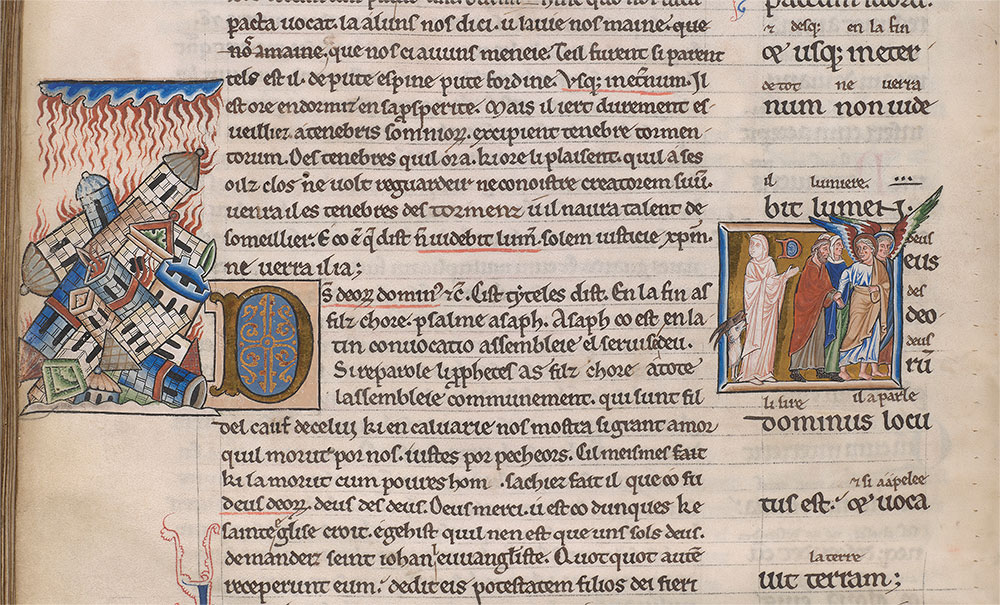 pacta uocat. la aluns nos dici. u laue nos maine. que
que nos ci auuns meneie. Teil furent si parent
tels est il. de pute espine pute fordine.
est ore endormiz en sa psperite. Mais il iert durement es
ueilliez. a tenebris somniorꝝ. excipient tenebre tormen
torum. Des tenebres quil ora. ki ore li plaisent. quil a ses
oilz clos ne uolt reguardeir ne conoistre creatorem suū.
uenra il es tenebres des tormenz u il naura talent de
someillier. E co ē q̄ dist n̄ uidebit lum̄. solem iusticie xp̄m.
ne uerra il ia;
s̄ deorꝝ dominꝰ ⁊c̄. dist. En la fin as
filz chore. psalme asaph. Asaph co est en la
tin conuocatio assembleie el seruise deu.
Si reparole li ꝓphetes as filz chore a tote
la ssembleie communement. qui sunt fil
del cauf de celui ki en caluarie nos mostra si grant amor
quil morut por nos. iustes por pecheors. Cil meismes fait
ki la morut cum poures hom. sachiez fait il que co fu
deus deorꝝ. deus des deus. Deus merci. u est co dunques ke
sainte eglise croit. e gehist quil nen est que uns sols deus.
demandez seint iohan leuuangliste. Quot quot autē
receperunt eum. dedit eis potestatem filios dei fieri
⁊ desq; en la fin
⁊ usq; in eter
de tot ne uerra
num non uide
il lumiere.
bit lumen.
deus
eus
des
deo
deus
rū
li sire il a parle
dominus locu
⁊ si a apelee
tus est. ⁊ uoca
la terre
uit terram;